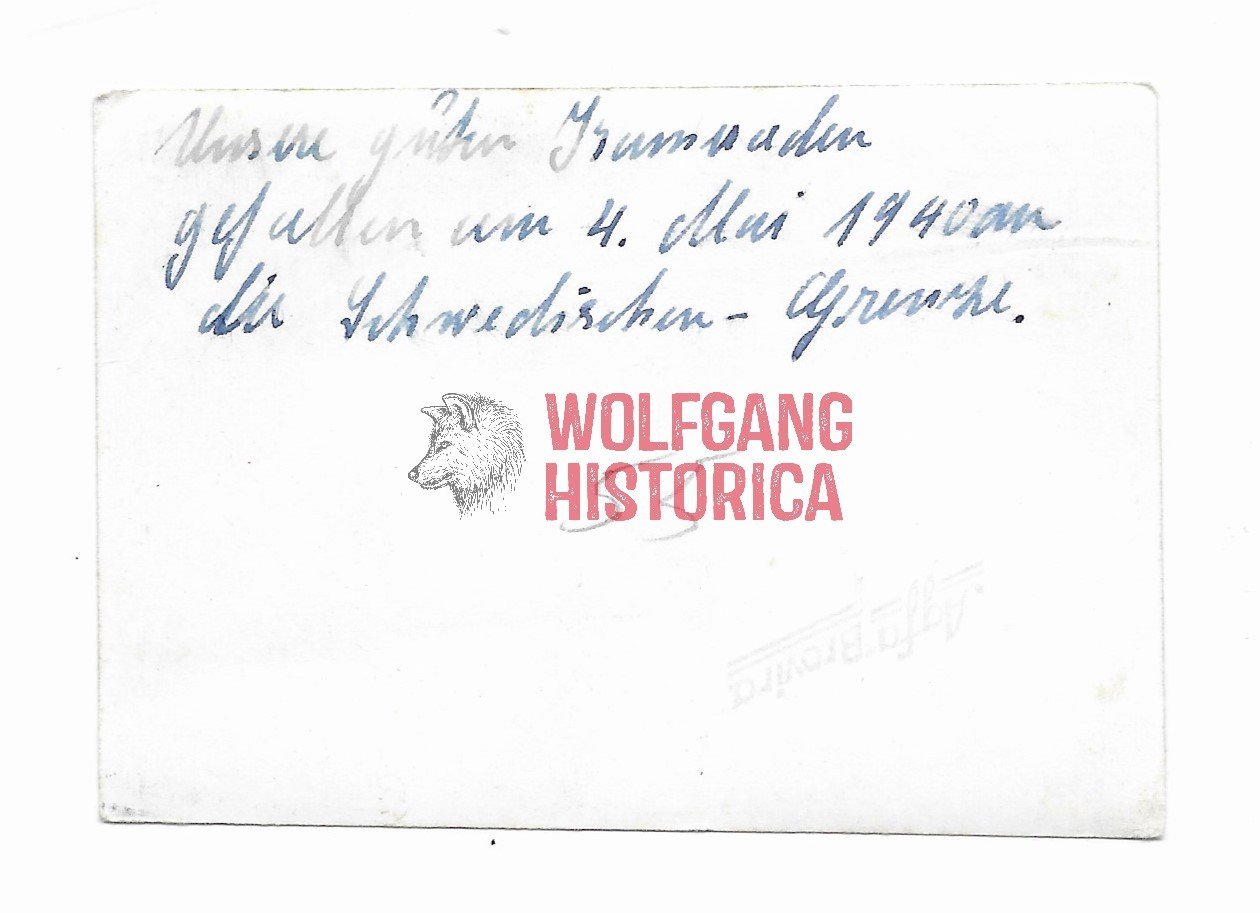 Unsere guten Kameraden
gefallen am 4. Mai 1940 an
die Schwedischen - Grenze.
WOLFGANG
HISTORICA
Agfa Brovira